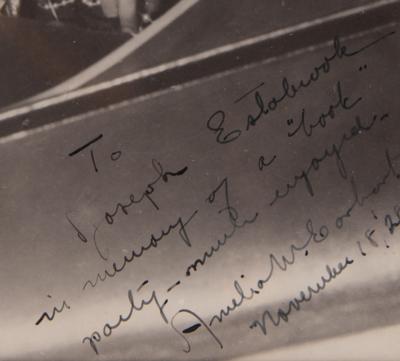 To
Joseph Estabrook
in memory of a "book"
party - much enjoyed.
Amelia M. Earhart
November 18, 28